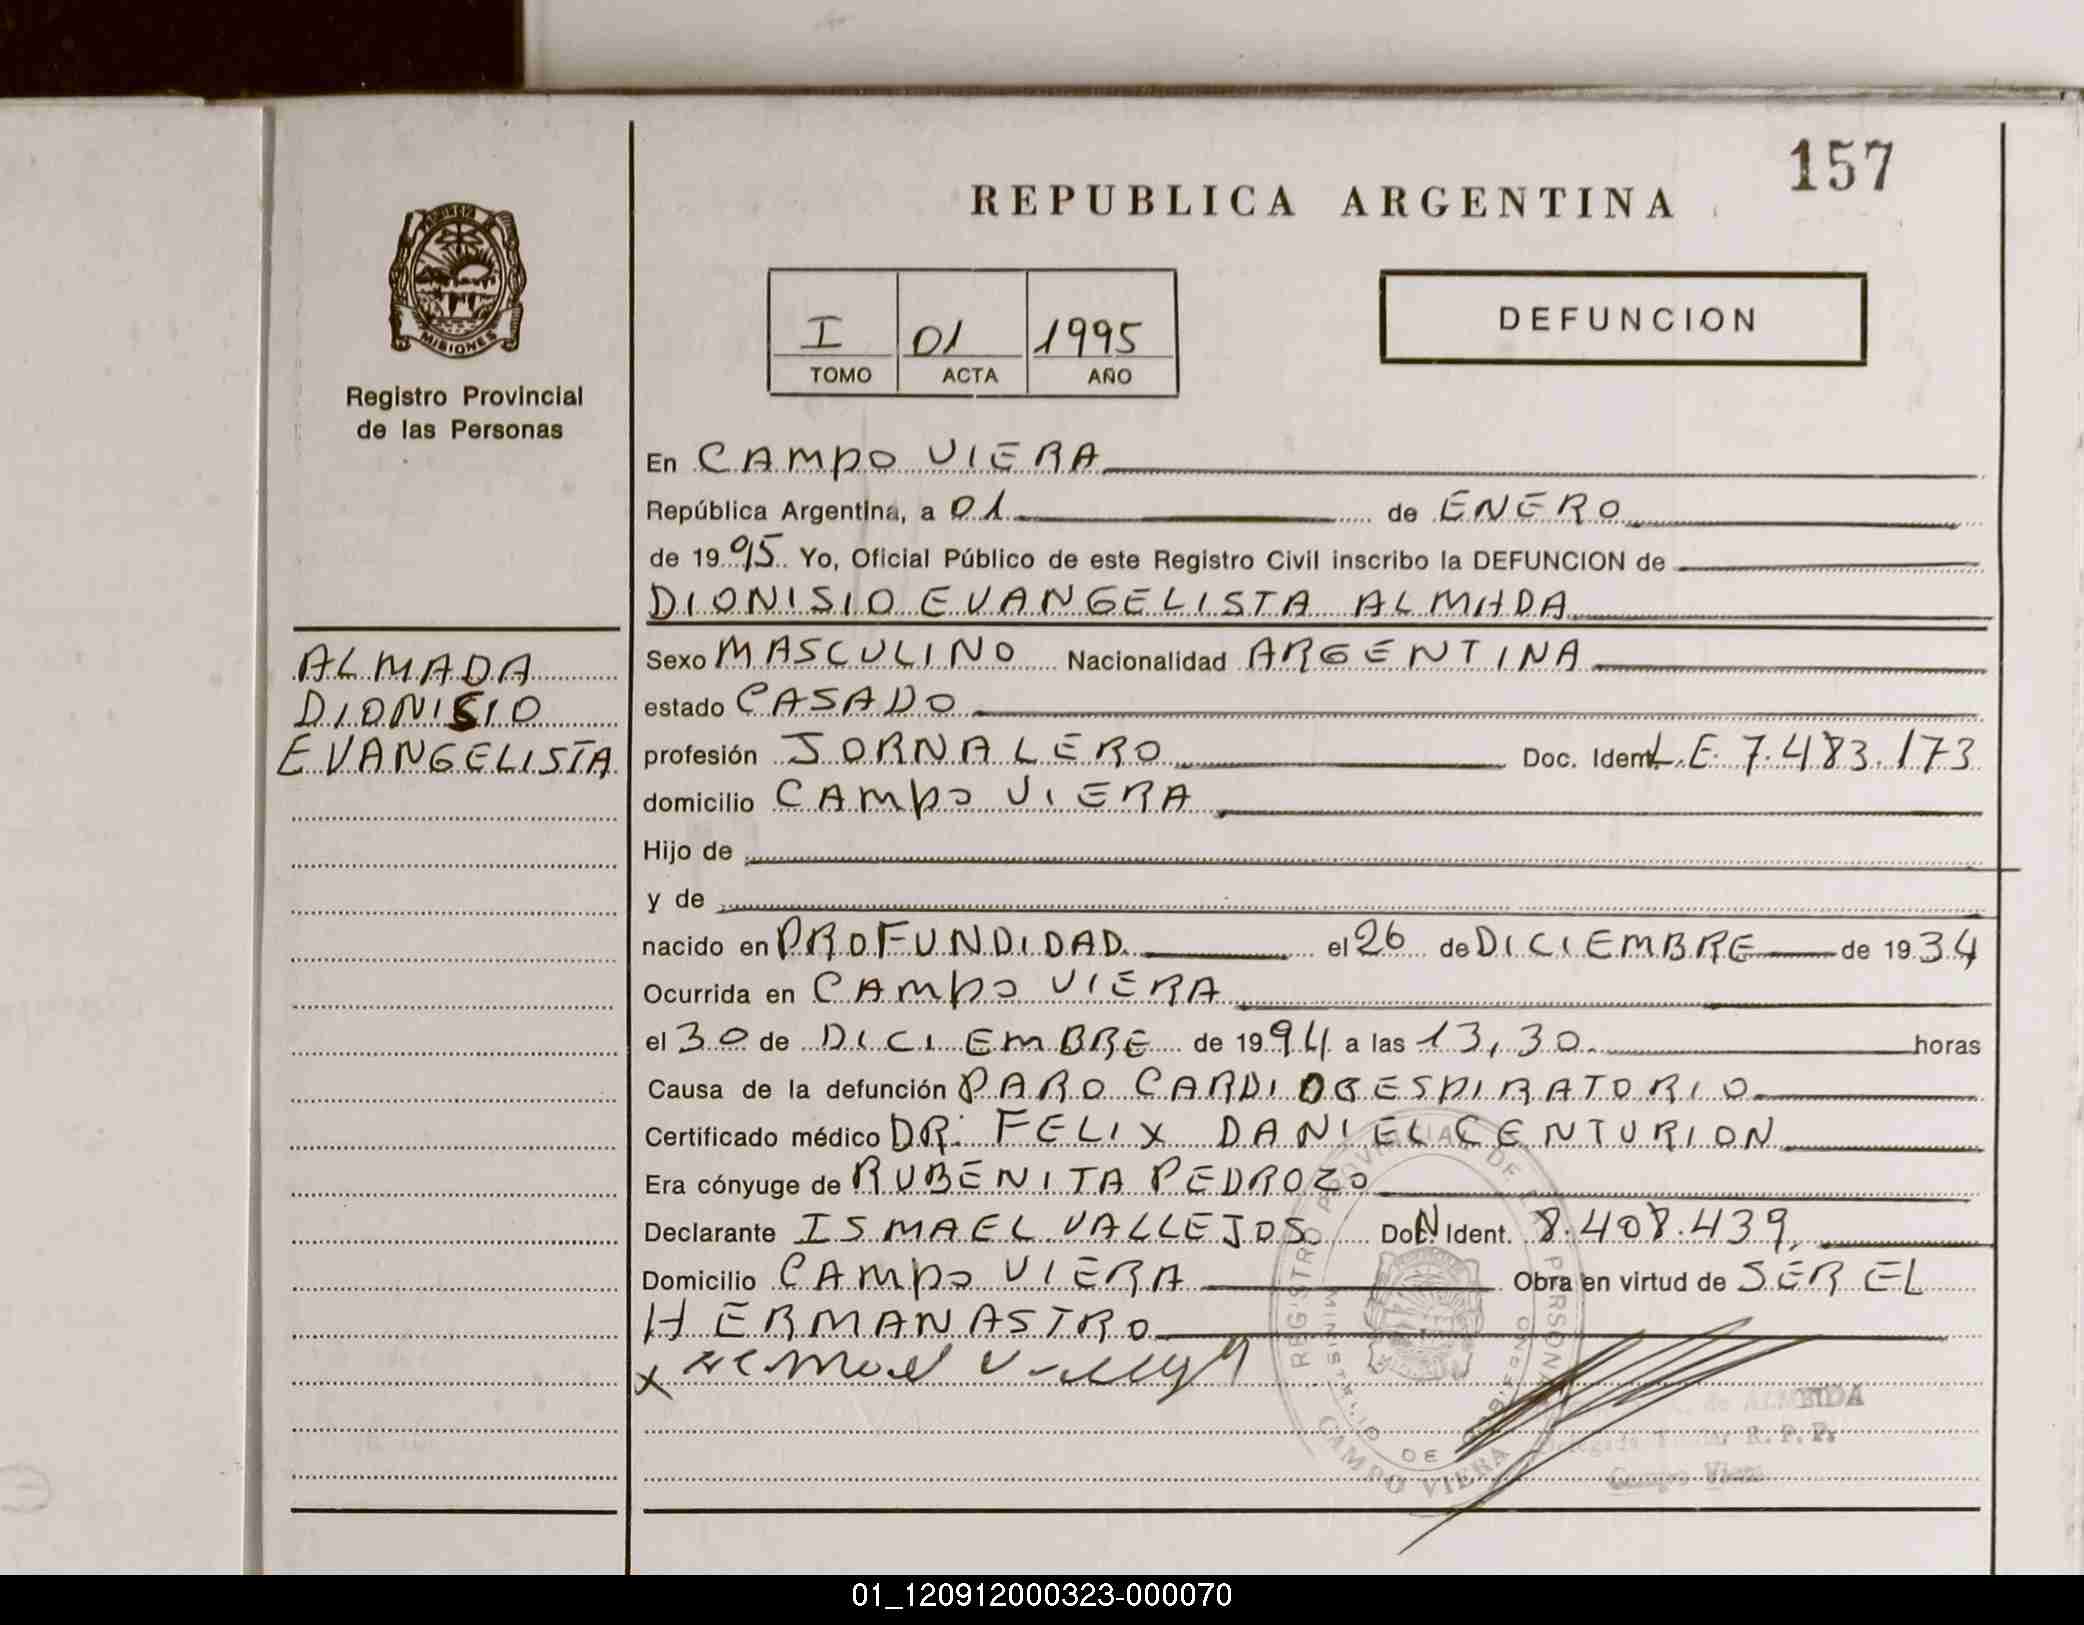 157
REPUBLICA ARGENTINA
MISIONES
Registro Provincial
de las Personas
I 01 1995
TOMO ACTA AÑO
DEFUNCION
En CAMPO VIERA
República Argentina, a 01 de ENERO
de 1995 Yo, Oficial Público de este Registro Civil inscribo la DEFUNCION de
DIONISIO EVANGELISTA ALMADA
ALMADA
DIONISIO
EVANGELISTA
Sexo MASCULINO Nacionalidad ARGENTINA
estado CASADO
profesión JORNALERO Doc. Ident. L.E. 7.483.173
domicilio CAMPO VIERA
Hijo de
y de
nacido en PROFUNDIDAD el 26 de DICIEMBRE de 1934
Ocurrida en CAMPO VIERA
el 30 de DICIEMBRE de 1994 a las 13,30 horas
Causa de la defunción PARO CARDIORESPIRATORIO
Certificado médico DR. FELIX DANIEL CENTURION
Era cónyuge de RUBENITA PEDROZO
Declarante ISMAEL VALLEJOS Doc. Ident. 8.408.439
Domicilio CAMPO VIERA Obra en virtud de SER EL
HERMANASTRO
REGISTRO PROVINCIAL DE PERSONAS
MINISTERIO DE GOBIERNO
CAMPO VIERA
x
de ALMEIDA
R. P. P.
Campo Viera
01_120912000323-000070